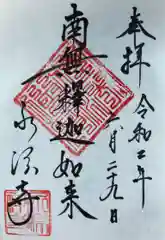 奉拝
令和二年
二月二九日
南無釋迦如来
永源寺